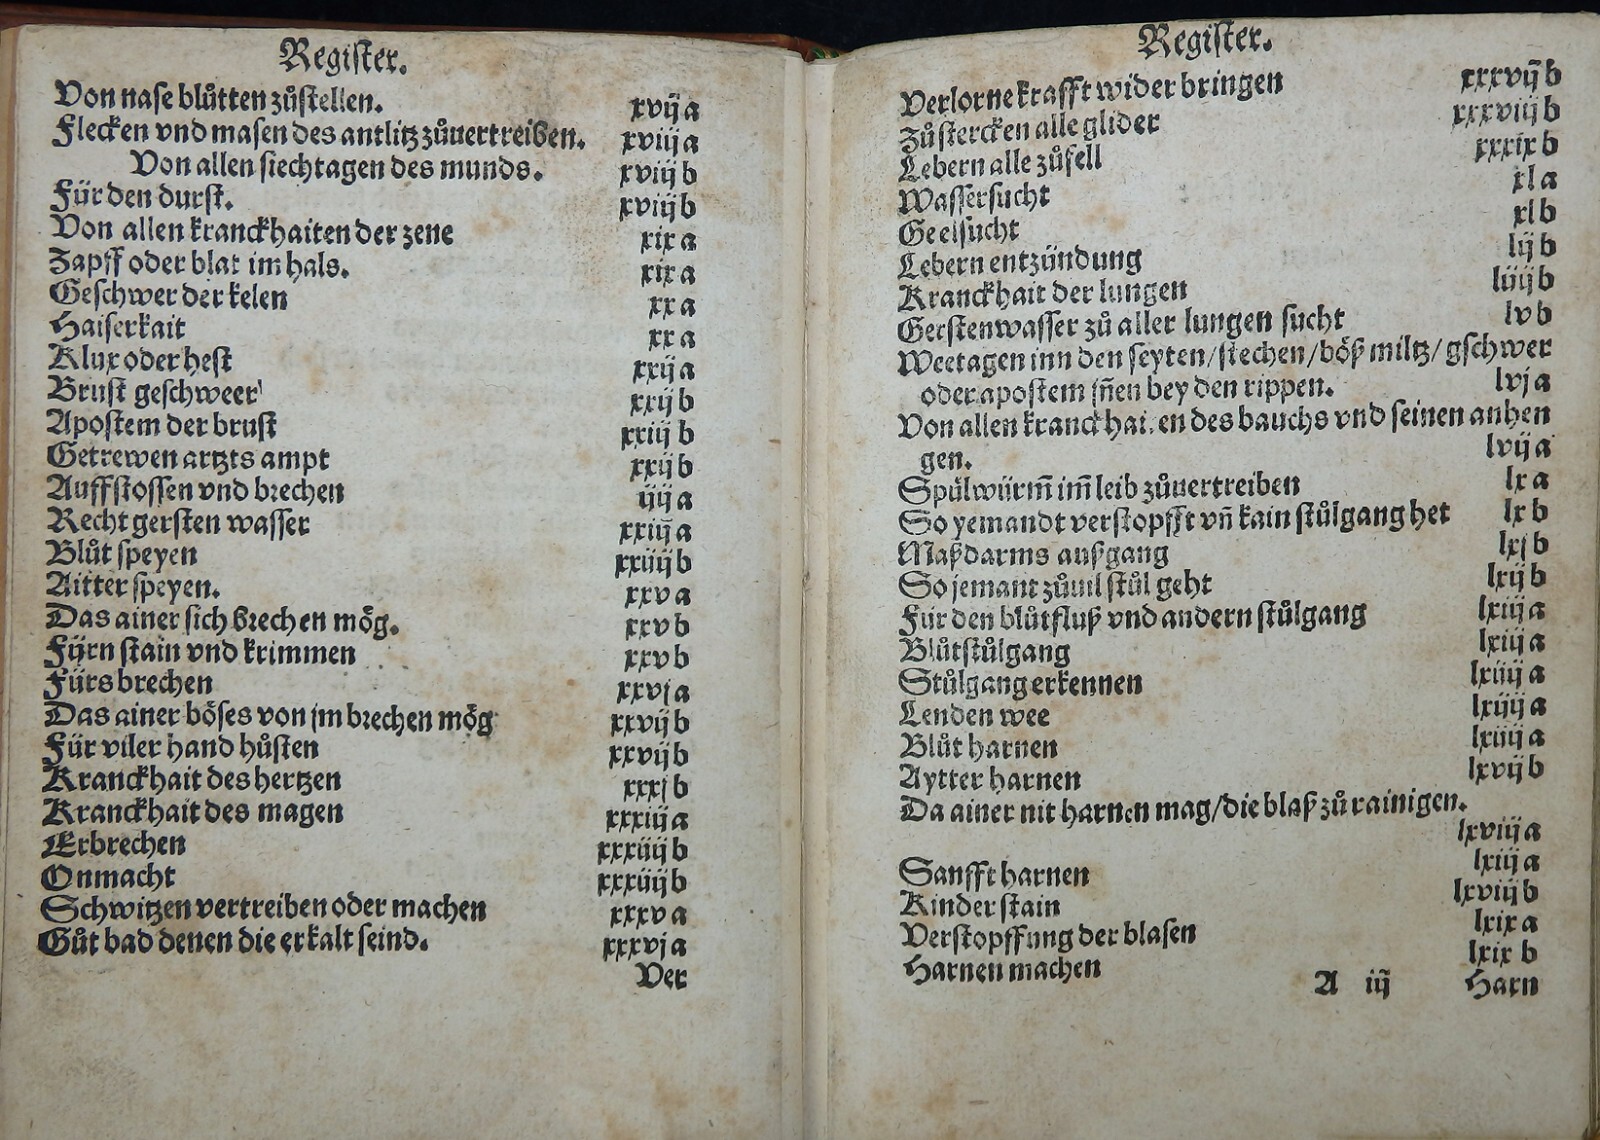 Register.
Von nase blůtten zůstellen. xvij a
Flecken vnd masen des antlitz zůuertreiben. xviij a
Von allen siechtagen des munds. xviij b
Für den durst. xviij b
Von allen kranckhaiten der zene xix a
Zapff oder blat im hals. xix a
Geschwer der kelen xx a
Haiserkait xx a
Klux oder hest xxij a
Brust geschweer xxij b
Apostem der brust xxiij b
Getrewen artzts ampt xxij b
Auffstossen vnd brechen iij a
Recht gersten wasser xxiij a
Blůt speyen xxiiij b
Aitter speyen. xxv a
Das ainer sich brechen mög. xxv b
Fürn stain vnd krimmen xxv b
Fürs brechen xxvj a
Das ainer böses von jm brechen mög xxvij b
Für viler hand hůsten xxvij b
Kranckhait des hertzen xxxj b
Kranckhait des magen xxxiij a
Erbrechen xxxiiij b
Onmacht xxxiiij b
Schwitzen vertreiben oder machen xxxv a
Gůt bad denen die erkalt seind. xxxvj a
Ver
Register.
Verlorne krafft wider bringen xxxvij b
Zůstercken alle glider xxxviij b
Lebern alle zůfell xxxix b
Wassersucht xl a
Geelsucht xl b
Lebern entzündung lij b
Kranckhait der lungen liiij b
Gerstenwasser zů aller lungen sucht lv b
Weetagen inn den seyten/stechen/böß miltz/gschwer
oder apostem jñen bey den rippen. lvj a
Von allen kranckhaiten des bauchs vnd seinen anhen
gen. lvij a
Spůlwürm̃ im̃ leib zůuertreiben lx a
So yemandt verstopfft vñ kain stůlgang het lx b
Maßdarms außgang lxj b
So jemant zůuil stůl geht lxij b
Für den blůtfluß vnd andern stůlgang lxiij a
Blůtstůlgang lxiij a
Stůlgang erkennen lxiiij a
Lenden wee lxiiij a
Blůt harnen lxiiij a
Aytter harnen lxvij b
Da ainer nit harnen mag/die blaß zů rainigen.
lxviij a
Sanfft harnen lxiij a
Kinder stain lxviij b
Verstopffung der blasen lxix a
Harnen machen lxix b
A iij Harn